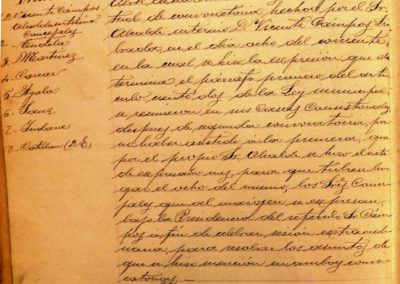 D. Vicente Campos
Alcalde interino
Concejales
2 Tudela
3 Martinez
4 Canar
5 Ayala
6 Sanz
7 Tudana
8 Catalán (D. E)
tud de convocatoria hecha por el Sr.
Alcalde interino D. Vicente Campos fir
mada en el dia ocho del corriente,
en la cual se hizo la expresion que de
termina el párrafo primero del arti
culo ciento dos de la Ley municipal,
se reunieron en sus Casas Consistoriales
despues de segunda convocatoria, por
no haber asistido a la primera, que
por el propio Sr. Alcalde se hizo el
de expresado mes, para que tubiera lu
gar el ocho del mismo, los Sres. Conce
jales que al margen se expresan,
bajo la Presidencia del referido Sr. Cam
pos a fin de celebrar sesión extraordi
naria, para resolver los asuntos de
que se hizo mención en ambas convo
catorias